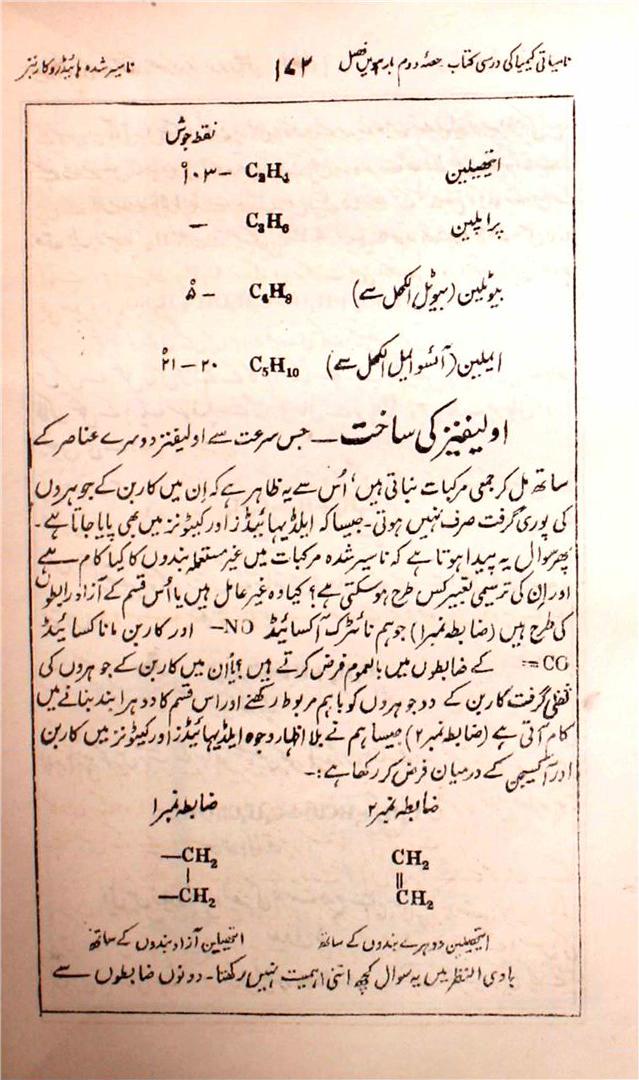 نامیاتی کیمیا کی درسی کتاب حصۂ دوم بارھویں فصل ۱۷۲ ناسیر شدہ ہائیڈروکاربنز
نقطۂ جوش
اتھیلین C₂H₄ –۱۰۳°
پراپلین C₃H₆ —
بیوٹلین (بیوٹل الکحل سے) C₄H₈ –۵°
ایملین (آئسو ایمل الکحل سے) C₅H₁₀ ۲۰–۲۱°
اولیفینز کی ساخت — جس سرعت سے اولیفنز دوسرے عناصر کے
ساتھ مل کر جمعی مرکبات بناتی ہیں، اُس سے یہ ظاہر ہے کہ اِن میں کاربن کے جوہروں
کی پوری گرفت صرف نہیں ہوتی۔ جیسا کہ ایلڈیہائیڈز اور کیٹونز میں بھی پایا جاتا ہے۔
پھر سوال یہ پیدا ہوتا ہے کہ ناسیر شدہ مرکبات میں غیر مستعملہ بندوں کا کیا کام ہے
اور اِن کی ترسیمی تعبیر کس طرح ہوسکتی ہے؟ کیا وہ غیر عامل ہیں یا اُس قسم کے آزاد رابطوں
کی طرح ہیں (ضابطہ نمبر۱) جو ہم نائٹرک آکسائیڈ NO– اور کاربن مانا کسائیڈ
CO= کے ضابطوں میں بالعموم فرض کرتے ہیں؟ یا اُن میں کاربن کے جوہروں کی
نفی گرفت کاربن کے دو جوہروں کو باہم مربوط رکھنے اور اس قسم کا دوہرا بند بنانے میں
کام آتی ہے (ضابطہ نمبر۲) جیسا ہم نے بلا اظہار وجوہ ایلڈیہائیڈز اور کیٹونز میں کاربن
اور آکسیجن کے درمیان فرض کر رکھا ہے:۔
ضابطہ نمبر۲ ضابطہ نمبر۱
CH₂ —CH₂
‖ |
CH₂ —CH₂
اتھیلین دوہرے بندوں کے ساتھ اتھیلین آزاد بندوں کے ساتھ
بادی النظر میں یہ سوال کچھ اتنی اہمیت نہیں رکھتا۔ دونوں ضابطوں سے